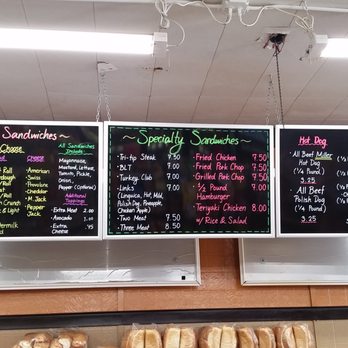 Sandwiches ~
Cheese
American
Swiss
Provolone
Cheddar
M. Jack
Pepper
Jack
All Sandwiches
Include:
Mayonnaise,
Mustard, Lettuce,
Tomato, Pickle,
Onion,
Pepper (Optional)
Additional
Toppings
Extra Meat 2.00
Avocado 1.00
Extra .45
Cheese
~ Specialty Sandwiches ~
Tri-tip Steak 9.50
BLT 7.00
Turkey Club 7.00
Links 7.00
(Linguica, Hot, Mild,
Polish Dog, Pineapple,
Chicken Apple)
Two Meat 7.50
Three Meat 8.50
Fried Chicken 7.50
Fried Pork Chop 7.50
Grilled Pork Chop 7.50
1/2 Pound 7.00
Hamburger
Teriyaki Chicken 8.00
w/ Rice & Salad
Hot Dog
All Beef Miller
Hot Dog
(1/4 Pound)
3.25
All Beef
Polish Dog
(1/4 Pound)
3.25